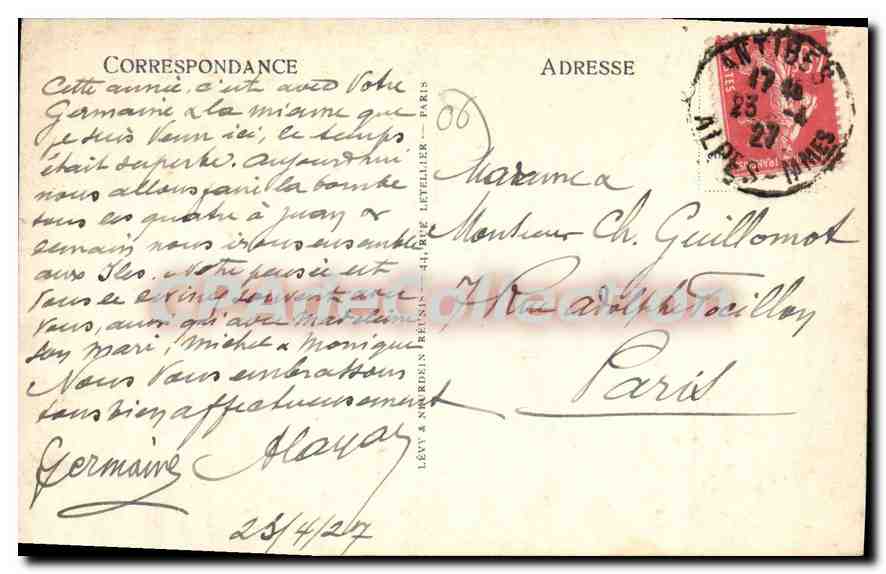 CORRESPONDANCE
Cette année, c'est avec votre
Germaine & la mienne que
je suis venu ici, le temps
était superbe. Aujourd'hui
nous allons faire la bombe
tous les quatre à Juan &
demain nous irons ensemble
aux Iles. Notre pensée est
vous le devinez souvent avec
vous, aussi qu'avec Madeleine
son mari, Michel & Monique
Nous vous embrassons
tous bien affectueusement
Germaine
23/4/27
LÉVY & NEURDEIN RÉUNIS — 44, RUE LETELLIER — PARIS
06
ADRESSE
ANTIBES
17
23 -4
27
ALPES-MMES
POSTES
FRANÇAISE
Madame &
Monsieur Ch. Guillomot
7 Rue Adolphe Focillon
Paris
CPArteCollection